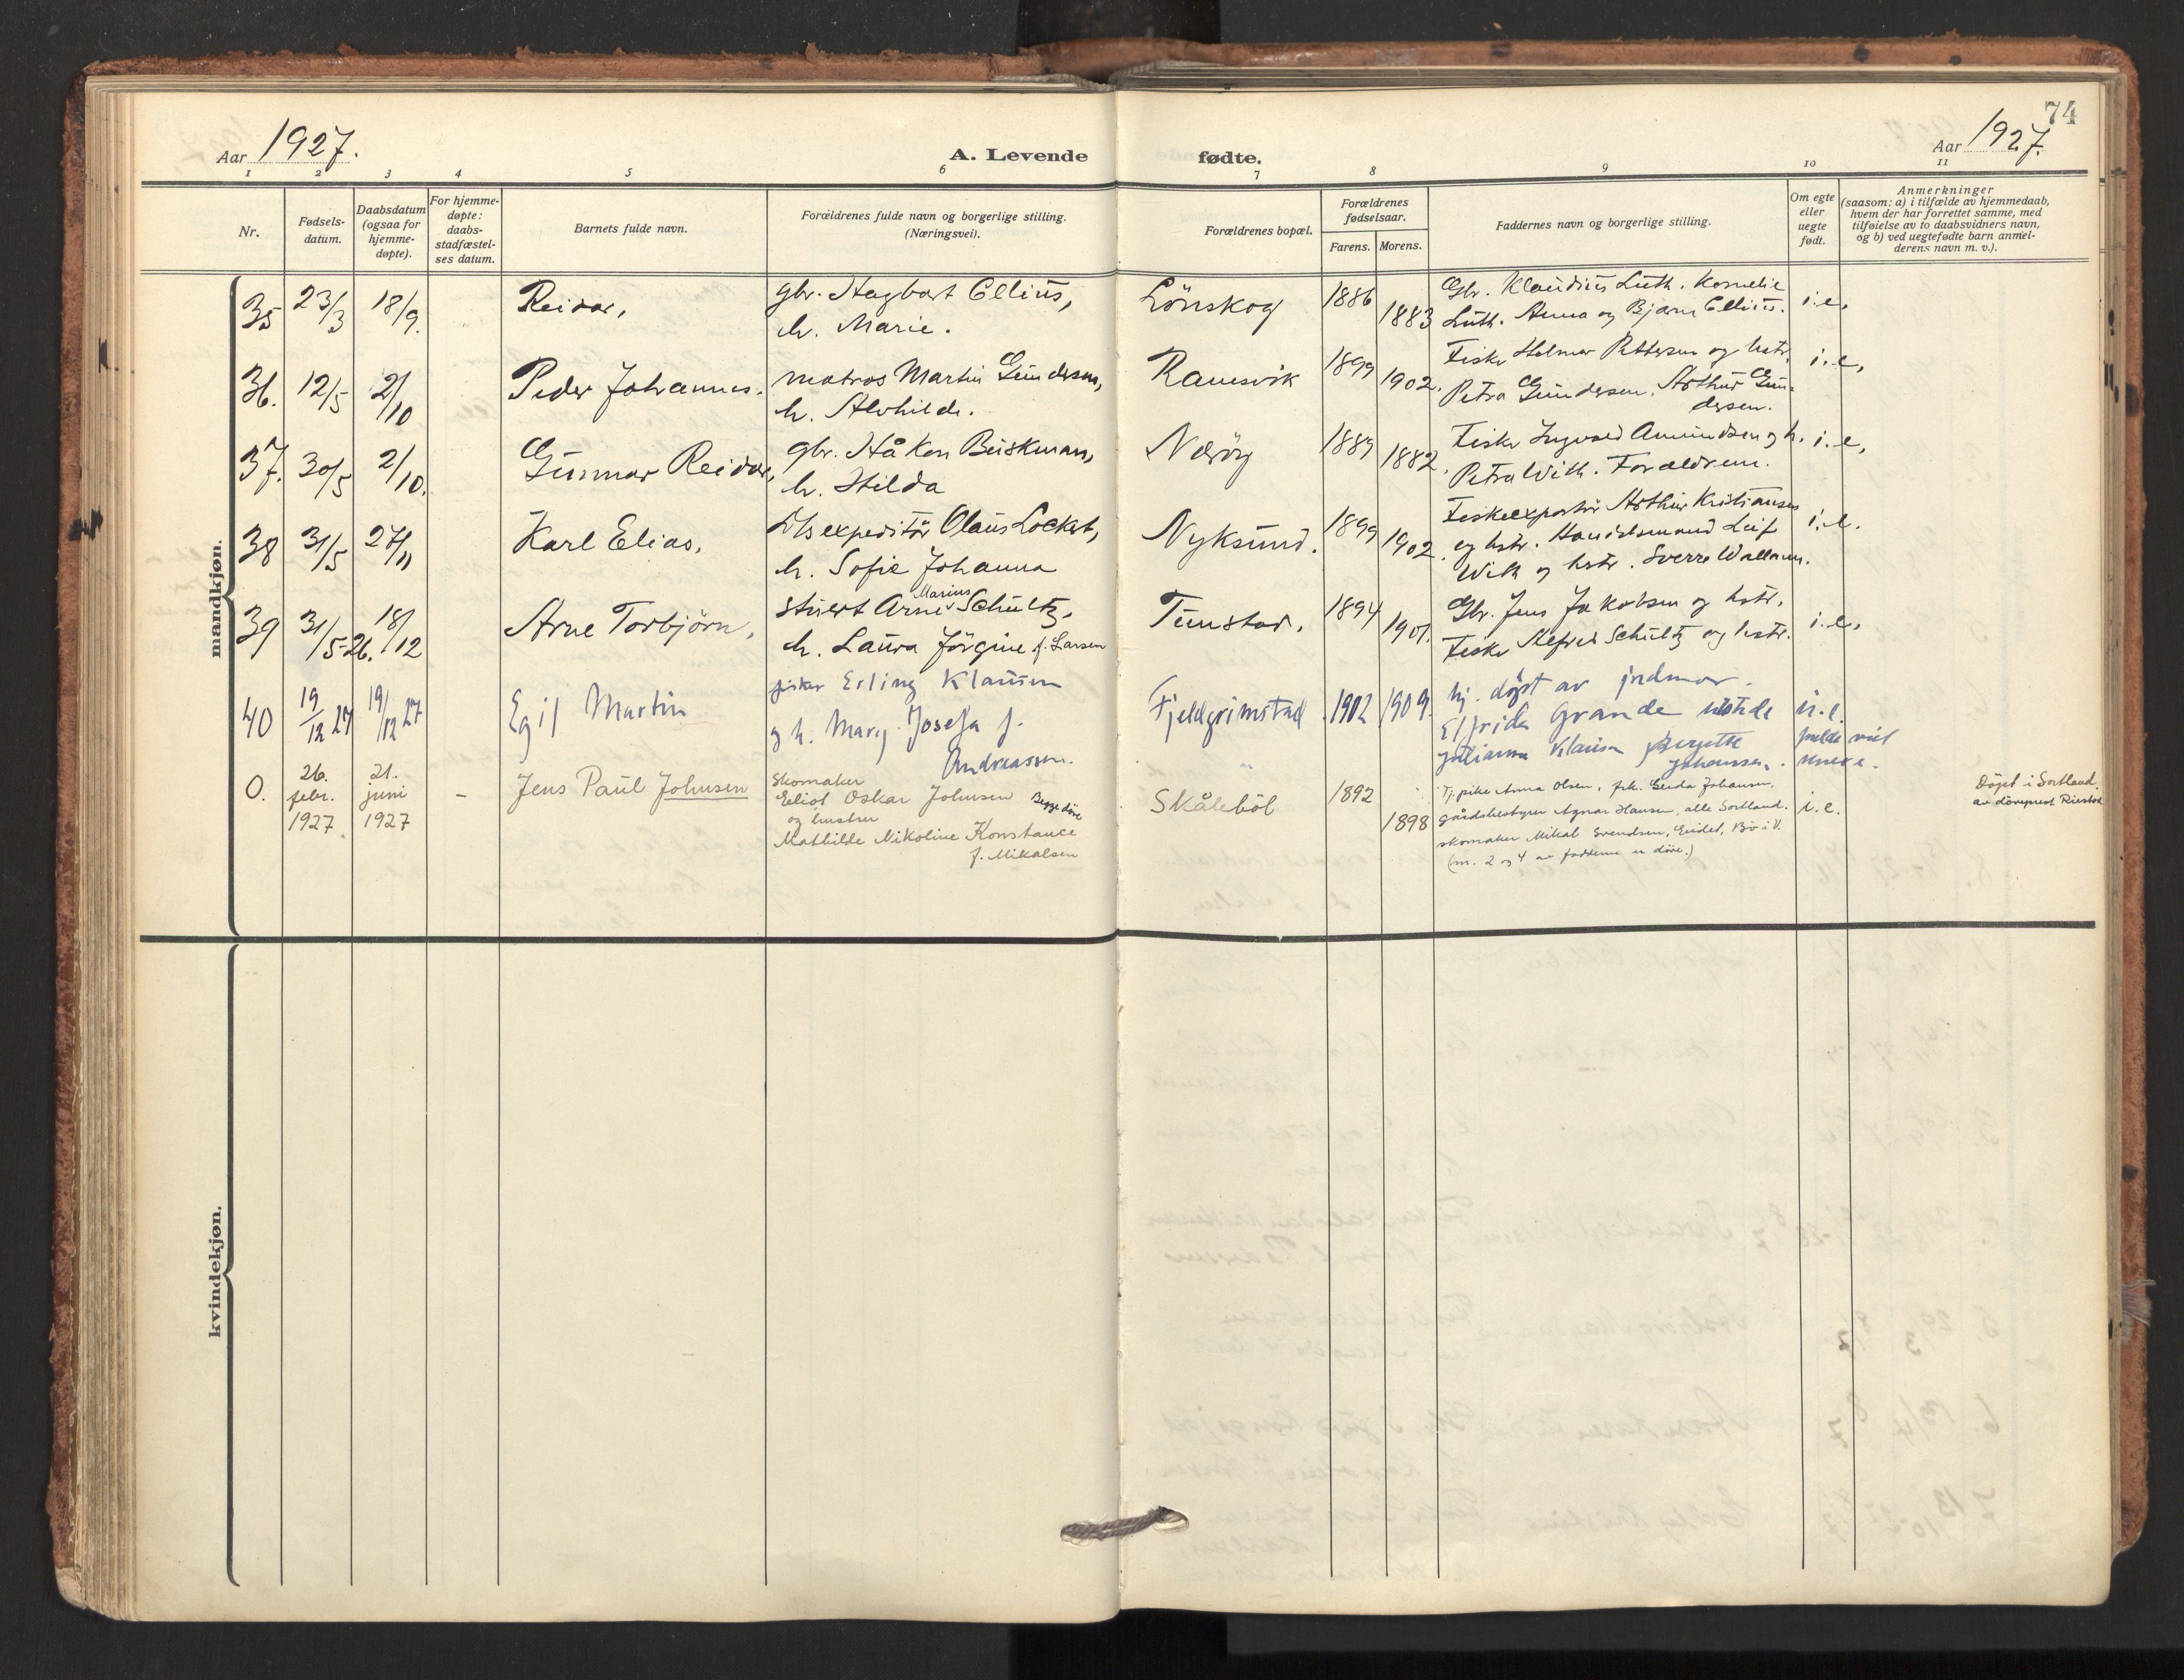 74
Aar 1927.
A. Levende
fødte.
Aar 1927.
1 2 3 4 5 6 7 8 9 10 11
Nr.
Fødsels-
datum.
Daabsdatum
(ogsaa for
hjemme-
døpte).
For hjemme-
døpte:
daabs-
stadfæstel-
ses datum.
Barnets fulde navn.
Forældrenes fulde navn og borgerlige stilling.
(Næringsvei).
Forældrenes bopæl.
Forældrenes
fødselsaar.
Farens. Morens.
Faddernes navn og borgerlige stilling.
Om egte
eller
uegte
født.
Anmerkninger
(saasom: a) i tilfælde av hjemmedaab,
hvem der har forrettet samme, med
tilføielse av to daabsvidners navn,
og b) ved uegtefødte barn anmel-
derens navn m. v.).
mandkjøn.
35 23/3 18/9. Reidar,
gbr. Hagbart Ellius,
h. Marie.
Lönskog 1886 1883
Gbr. Klaudius Luth. Kornelie
Luth. Anna og Bjarne Ellius.
i.e.
36. 12/5 2/10 Peder Johannes.
matros Martin Gundersen,
h. Alvhilde.
Ramsvik 1899 1902.
Fisker Helmer Pettersen og hstr.
Petra Gundersen. Arthur Gun-
dersen.
i.e.
37. 30/5 2/10. Gunnar Reidar,
gbr. Håkon Buskman,
h. Hilda
Nærøy 1889 1882.
Fisker Ingvald Amundsen og h.
Petra With. Forældrene.
i.e.
38 31/5 27/11 Karl Elias,
D/s expeditör Olaus Lockert,
h. Sofie Johanna
Nyksund. 1899 1902.
Fiskeexportör Arthur Kristiansen
og hstr. Handelsmand Leif
With og hstr. Sverre Wallann.
i.e.
39 31/5-26. 18/12 Arne Torbjörn,
Stuert Arne Marius Schultz,
h. Laura Jörgine f. Larsen
Tunstad. 1894 1901.
Gbr. Jens Jakobsen og hstr.
Fisker Alfred Schultz og hstr.
i.e.
40 19/12 27 19/12 27 Egil Martin
fisker Erling Klausen
og h. Marg. Josefa f.
Andreassen.
Fjeldgrimstad 1902 1909.
hj. døpt av jordmor.
Elfrida Grande
Julianna Klausen Bergitte
Johanssen.
0. 26.
febr.
1927
21.
juni
1927
-
Jens Paul Johnsen
Skomaker
Eliot Oskar Johnsen Begge döve
og hustru
Mathilde Nikoline Konstance
f. Mikalsen
Skålebøl 1892 1898
Tj.pike Anna Olsen, frk. Gerda Johansen,
gårdsbestyrer Agnar Hansen, alle Sortland.
skomaker Mikal Svendsen, Eidet, Bö i V.
(nr. 2 og 4 av fadderne er døve.)
i.e.
Döpt i Sortland.
av døveprest
kvindekjøn.